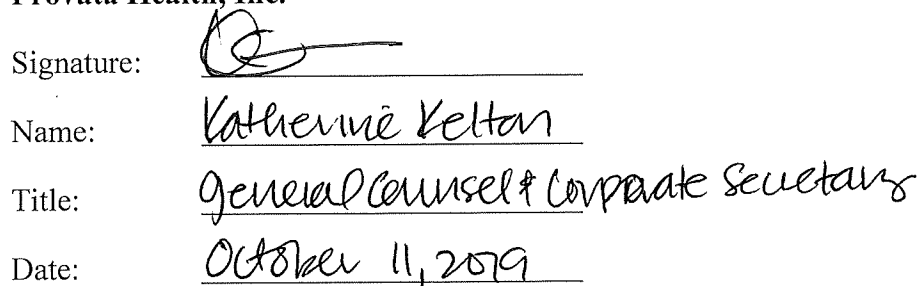 Provata Health, Inc.
Signature:
Name: Katherine Kelton
Title: General Counsel & Corporate Secretary
Date: October 11, 2019